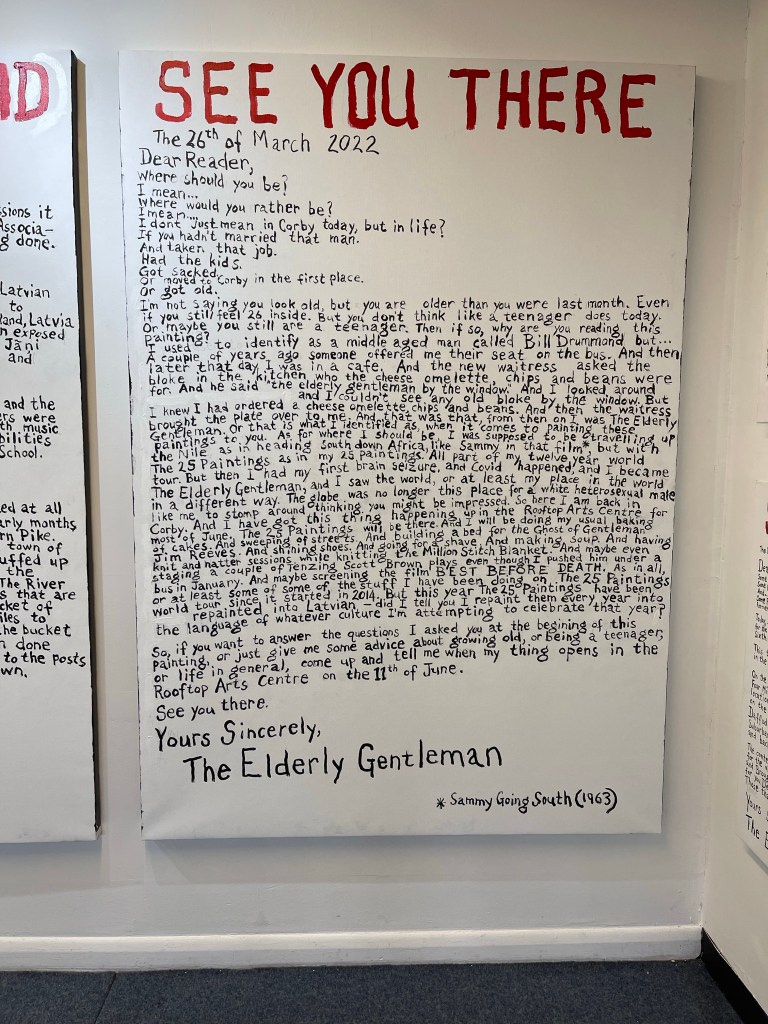 SEE YOU THERE
The 26th of March 2022
Dear Reader,
Where should you be?
I mean...
Where would you rather be?
I mean...
I dont just mean in Corby today, but in life?
If you hadn't married that man.
And taken that job.
Had the kids.
Got sacked.
Or moved to Corby in the first place.
Or got old.
I'm not saying you look old, but you are older than you were last month. Even
if you still feel 26 inside. But you don't think like a teenager does today.
Or maybe you still are a teenager. Then if so, why are you reading this
painting?
I used to identify as a middle aged man called Bill Drummond but...
A couple of years ago someone offered me their seat on the bus. And then
later that day I was in a cafe. And the new waitress asked the
bloke in the kitchen who the cheese omelette, chips and beans were
for. And he said "the elderly gentleman by the window." And I looked around
and I couldn't see any old bloke by the window. But
I knew I had ordered a cheese omelette, chips and beans. And then the waitress
brought the plate over to me. And that was that, from then on I was The Elderly
Gentleman. Or that is what I identified as, when it comes to painting these
paintings to you. As for where I should be, I was supposed to be travelling up
the Nile as in heading South down Africa like Sammy in that film*, but with
The 25 Paintings as in my 25 paintings. All part of my twelve year world
tour. But then I had my first brain seizure, and Covid happened, and I became
The Elderly Gentleman, and I saw the world, or at least my place in the world
in a different way. The globe was no longer this place for a white heterosexual male
like me, to stomp around thinking you might be impressed. So here I am back in
Corby. And I have got this thing happening up in the Rooftop Arts Centre for
most of June. The 25 Paintings will be there. And I will be doing my usual baking
of cakes. And sweeping of streets. And building a bed for the Ghost of Gentleman
Jim Reeves. And shining shoes. And going for a shave. And making soup. And having
knit and natter sessions while knitting the Million Stitch Blanket. And maybe even
staging a couple of Tenzing Scott Brown plays even though I pushed him under a
bus in January. And maybe screening the film BEST BEFORE DEATH. As in all,
or at least some of some of the stuff I have been doing on The 25 Paintings
world tour since it started in 2014. But this year The 25 Paintings have been
repainted into Latvian – did I tell you I repaint them every year into
the language of whatever culture I'm attempting to celebrate that year?
So, if you want to answer the questions I asked you at the begining of this
painting, or just give me some advice about growing old, or being a teenager,
or life in general, come up and tell me when my thing opens in the
Rooftop Arts Centre on the 11th of June.
See you there.
Yours Sincerely,
The Elderly Gentleman
* Sammy Going South (1963)
ssions it
Associa-
g done.
Latvian
to
land, Latvia
n exposed
Jāni
and
and the
rs were
th music
bilities
School.
ed at all
arly months
rn Pike.
town of
uffed up
the
The River
s that are
cket of
iles to
he bucket
n done
to the posts
wn.